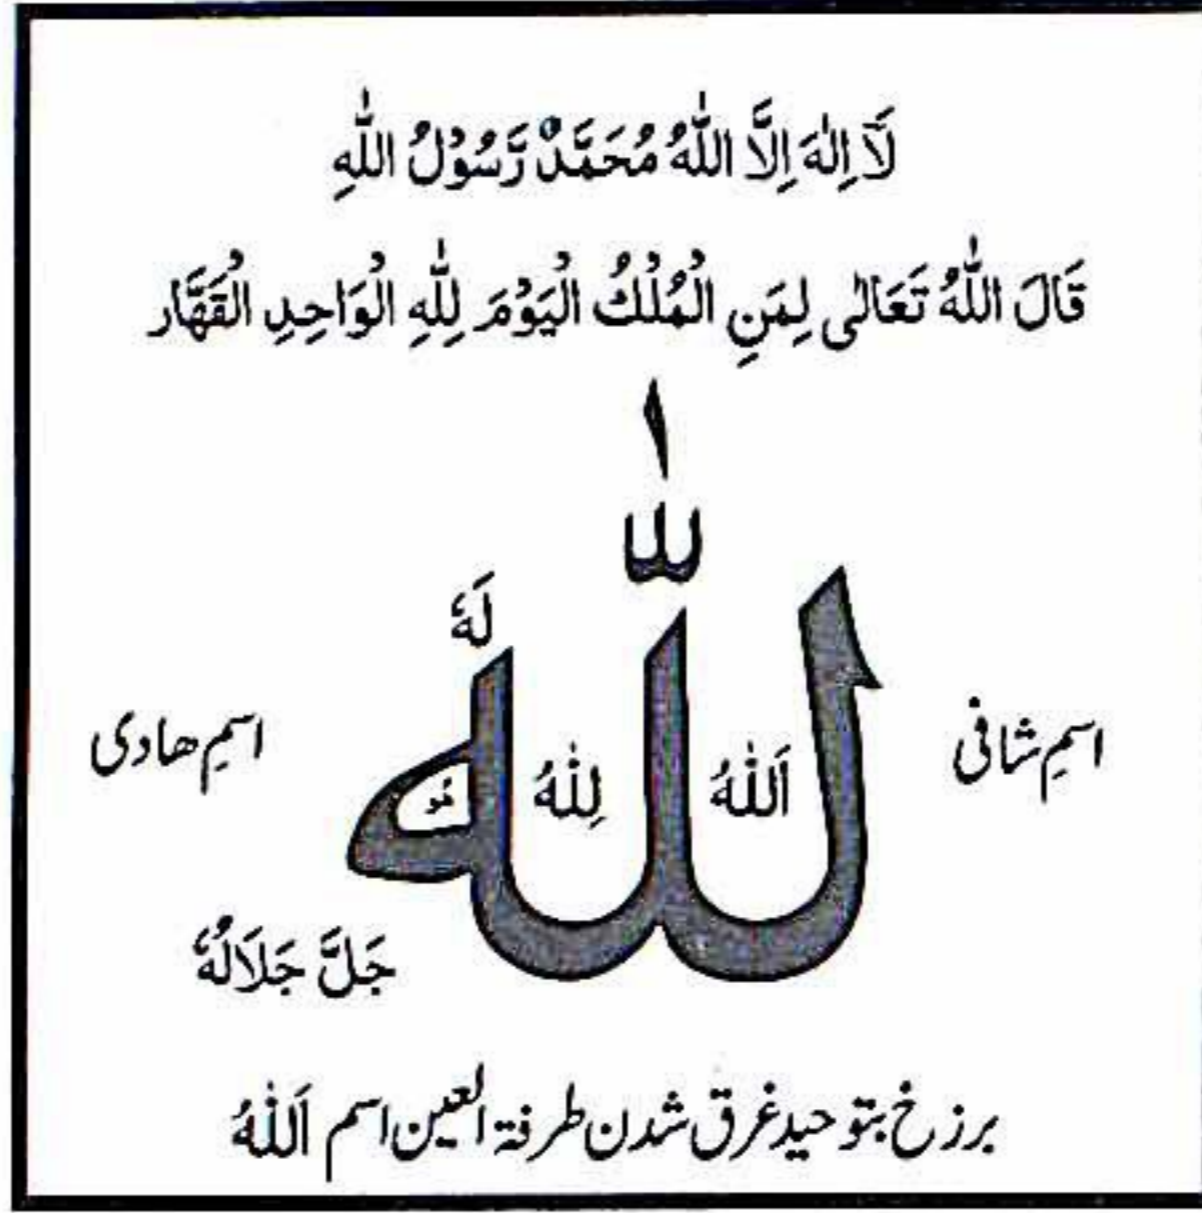 لَآ اِلٰهَ اِلَّا اللّٰهُ مُحَمَّدٌ رَّسُوْلُ اللّٰهِ
قَالَ اللّٰهُ تَعَالٰى لِمَنِ الْمُلْكُ الْيَوْمَ لِلّٰهِ الْوَاحِدِ الْقَهَّار
اللّٰه
لَهٗ
اسمِ شافی
اَللّٰهُ
لِلّٰهُ
هُو
اسمِ هادی
جَلَّ جَلَالُهٗ
برزخ بتوحید غرق شدن طرفۃ العین اسم اَللّٰهُ